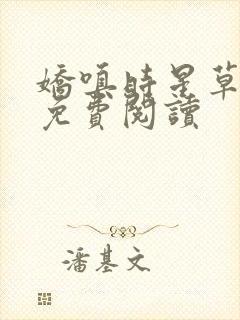 嬌嗔時星草
免費閱讀
潘基文